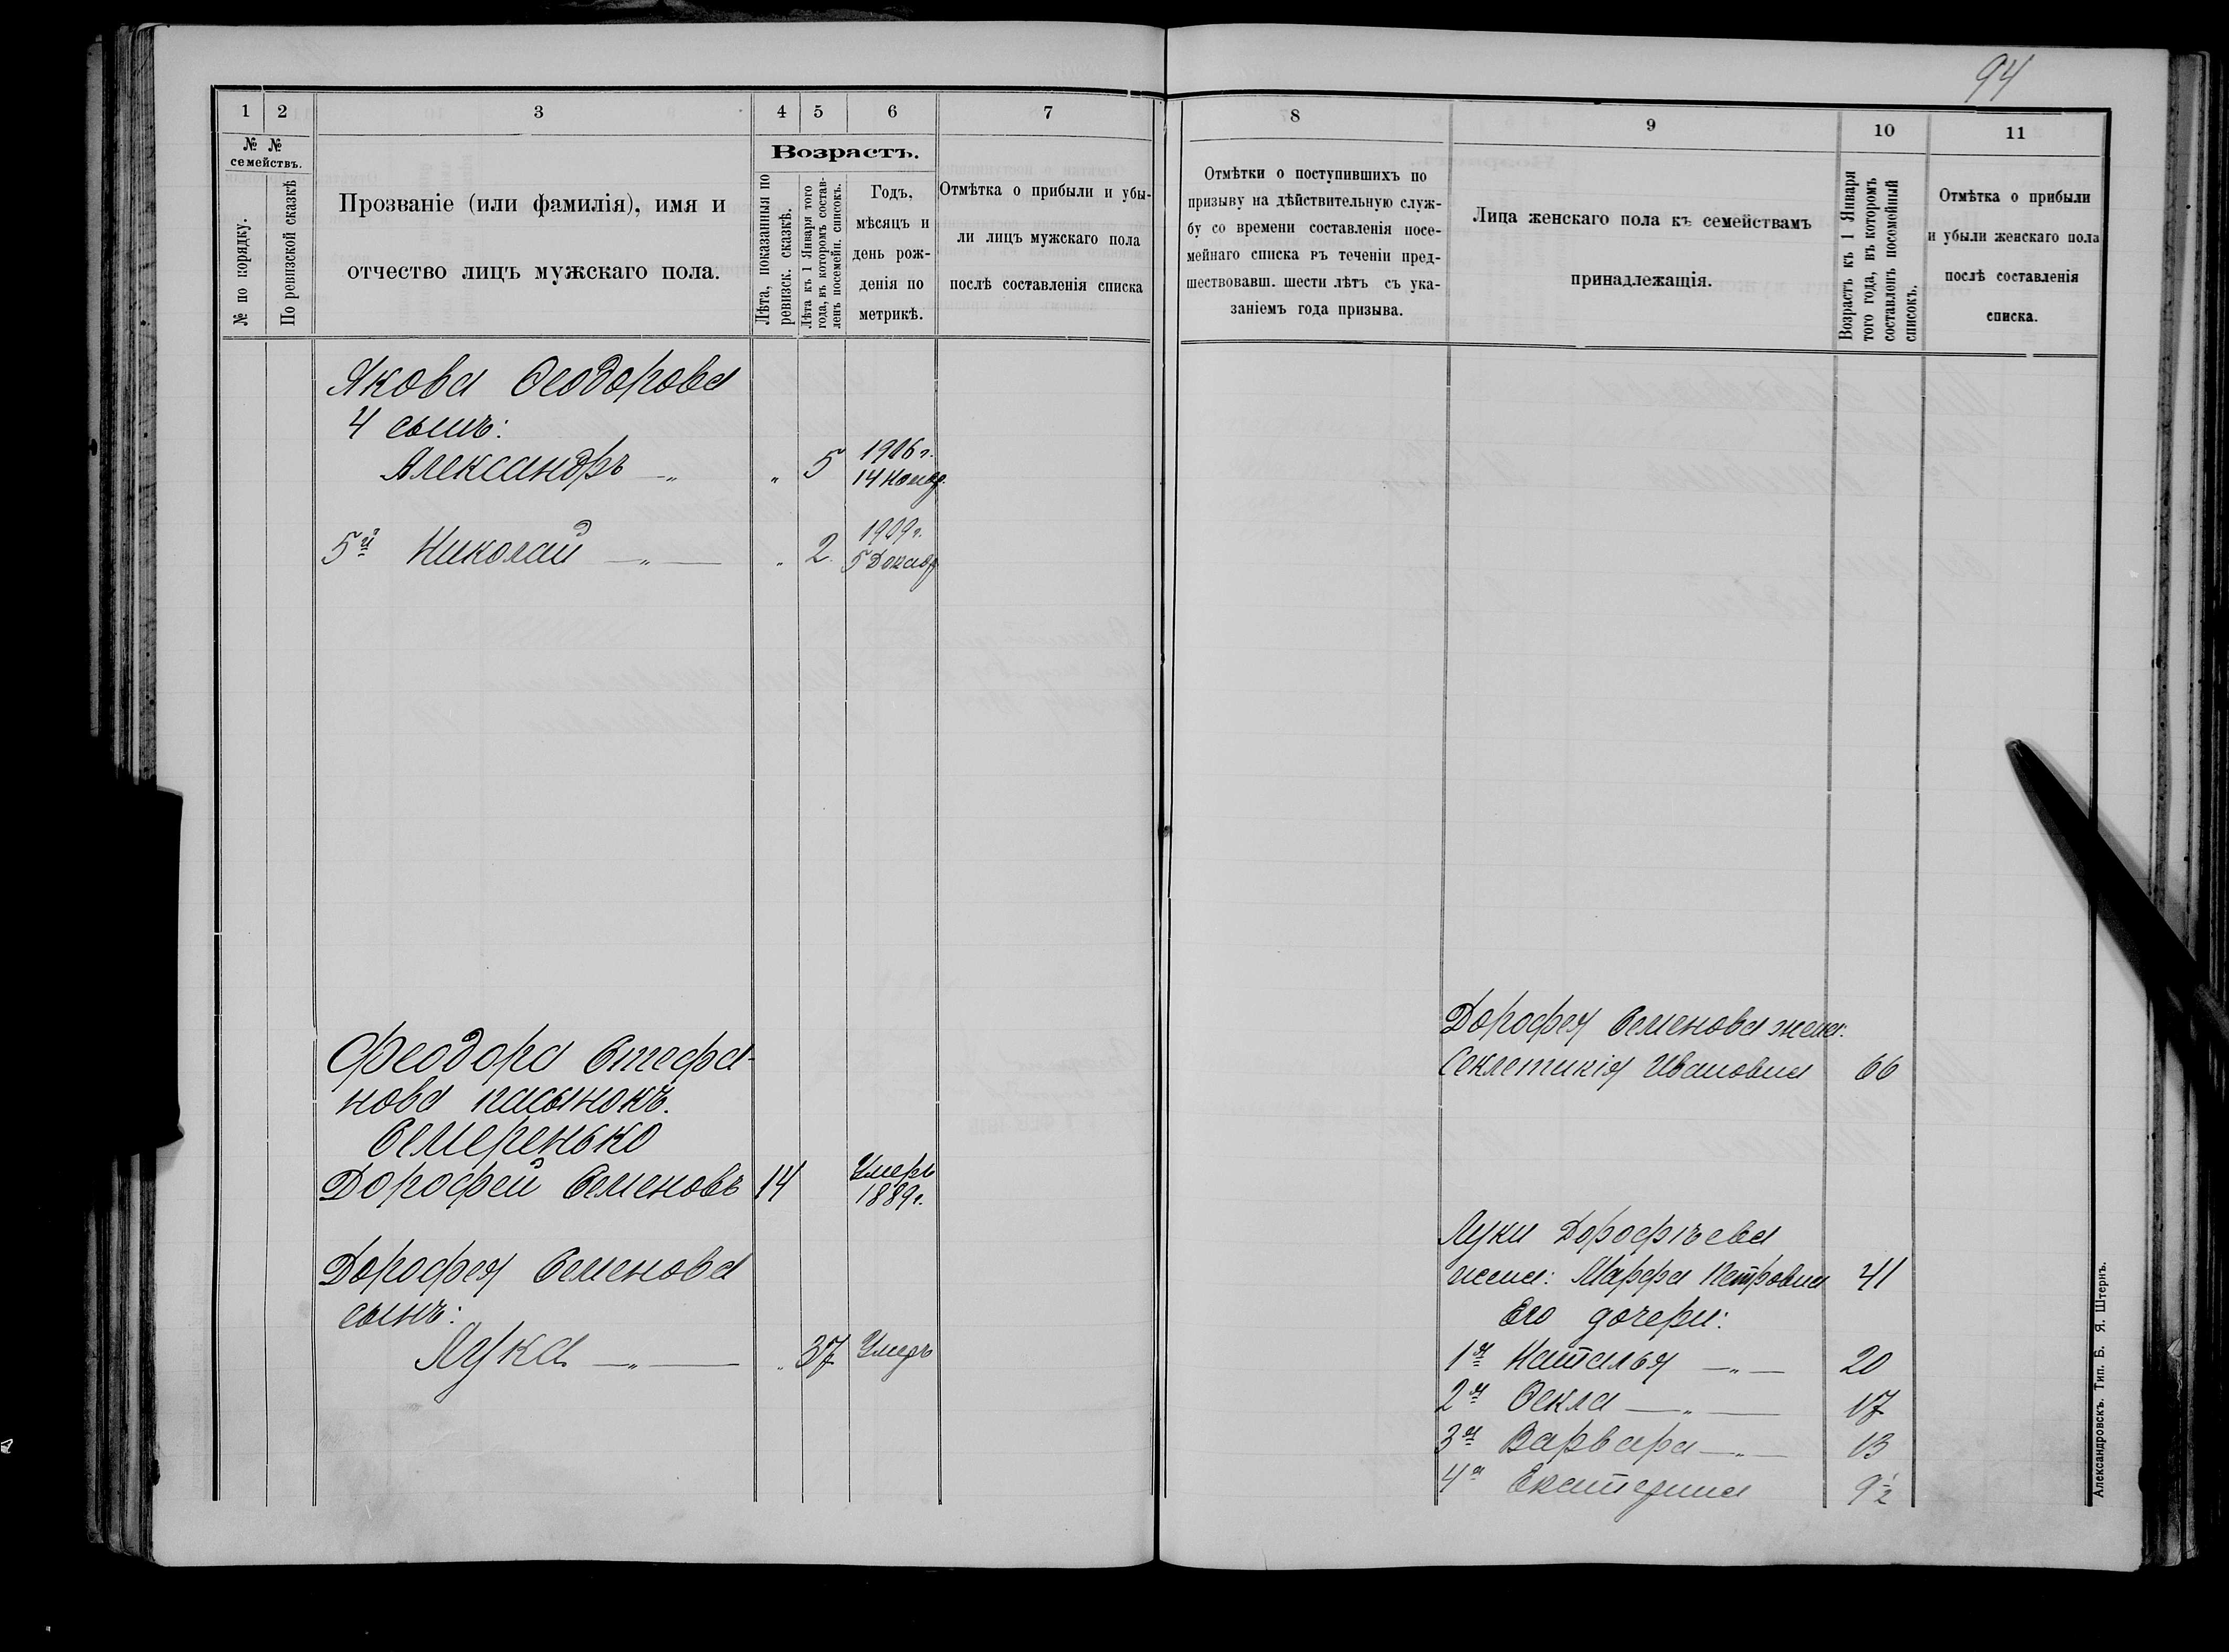 94
1 2 3 4 5 6 7
№ № семействъ.
№ по порядку.
По ревизской сказкѣ
Прозваніе (или фамилія), имя и
отчество лицъ мужскаго пола.
Возрастъ.
Лѣта, показанныя по
ревизск. сказкѣ.
Лѣта къ 1 Января того
года, въ которомъ состав-
ленъ посемейн. списокъ.
Годъ,
мѣсяцъ и
день рож-
денія по
метрикѣ.
Отмѣтка о прибыли и убы-
ли лицъ мужскаго пола
послѣ составленія списка
Якова Ѳеодорова
4 сынъ:
Александръ —„ „ 5 1906 г.
14 Нояб.
5й Николай —„— „ 2 1909 г.
5 Декабр
Феодора Стефа-
нова пасынокъ.
Семеренько
Дорофей Семеновъ 14 Умеръ
1889 г.
Дорофея Семенова
сынъ:
Лука —„— „ 37 Умеръ
8 9 10 11
Отмѣтки о поступившихъ по
призыву на дѣйствительную служ-
бу со времени составленія посе-
мейнаго списка въ теченіи пред-
шествовавш. шести лѣтъ съ ука-
заніемъ года призыва.
Лица женскаго пола къ семействамъ
принадлежащія.
Возрастъ къ 1 Января
того года, въ которомъ
составленъ посемейный
списокъ.
Отмѣтка о прибыли
и убыли женскаго пола
послѣ составленія
списка.
Дорофея Семенова жена:
Секлетикія Ивановна 66
Луки Дорофѣева
жена: Марфа Петровна 41
Его дочери:
1я Наталья —„— 20
2я Ѳекла —„— 17
3я Варвара —„— 13
4я Екатерина 9½
Александровскъ. Тип. Б. Я. Штернъ.